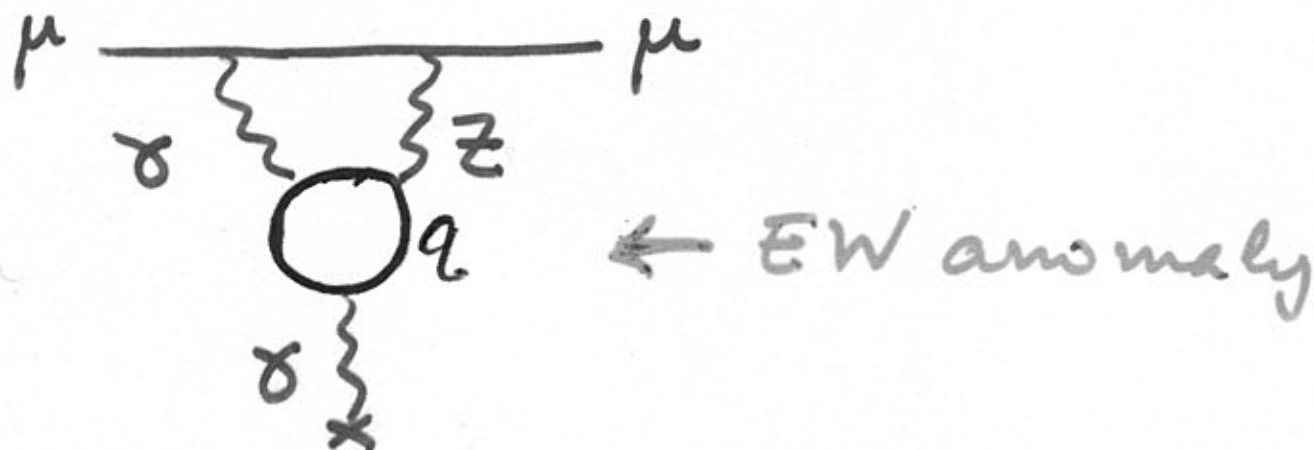 μ μ
γ Z
q ← EW anomaly
γ
×